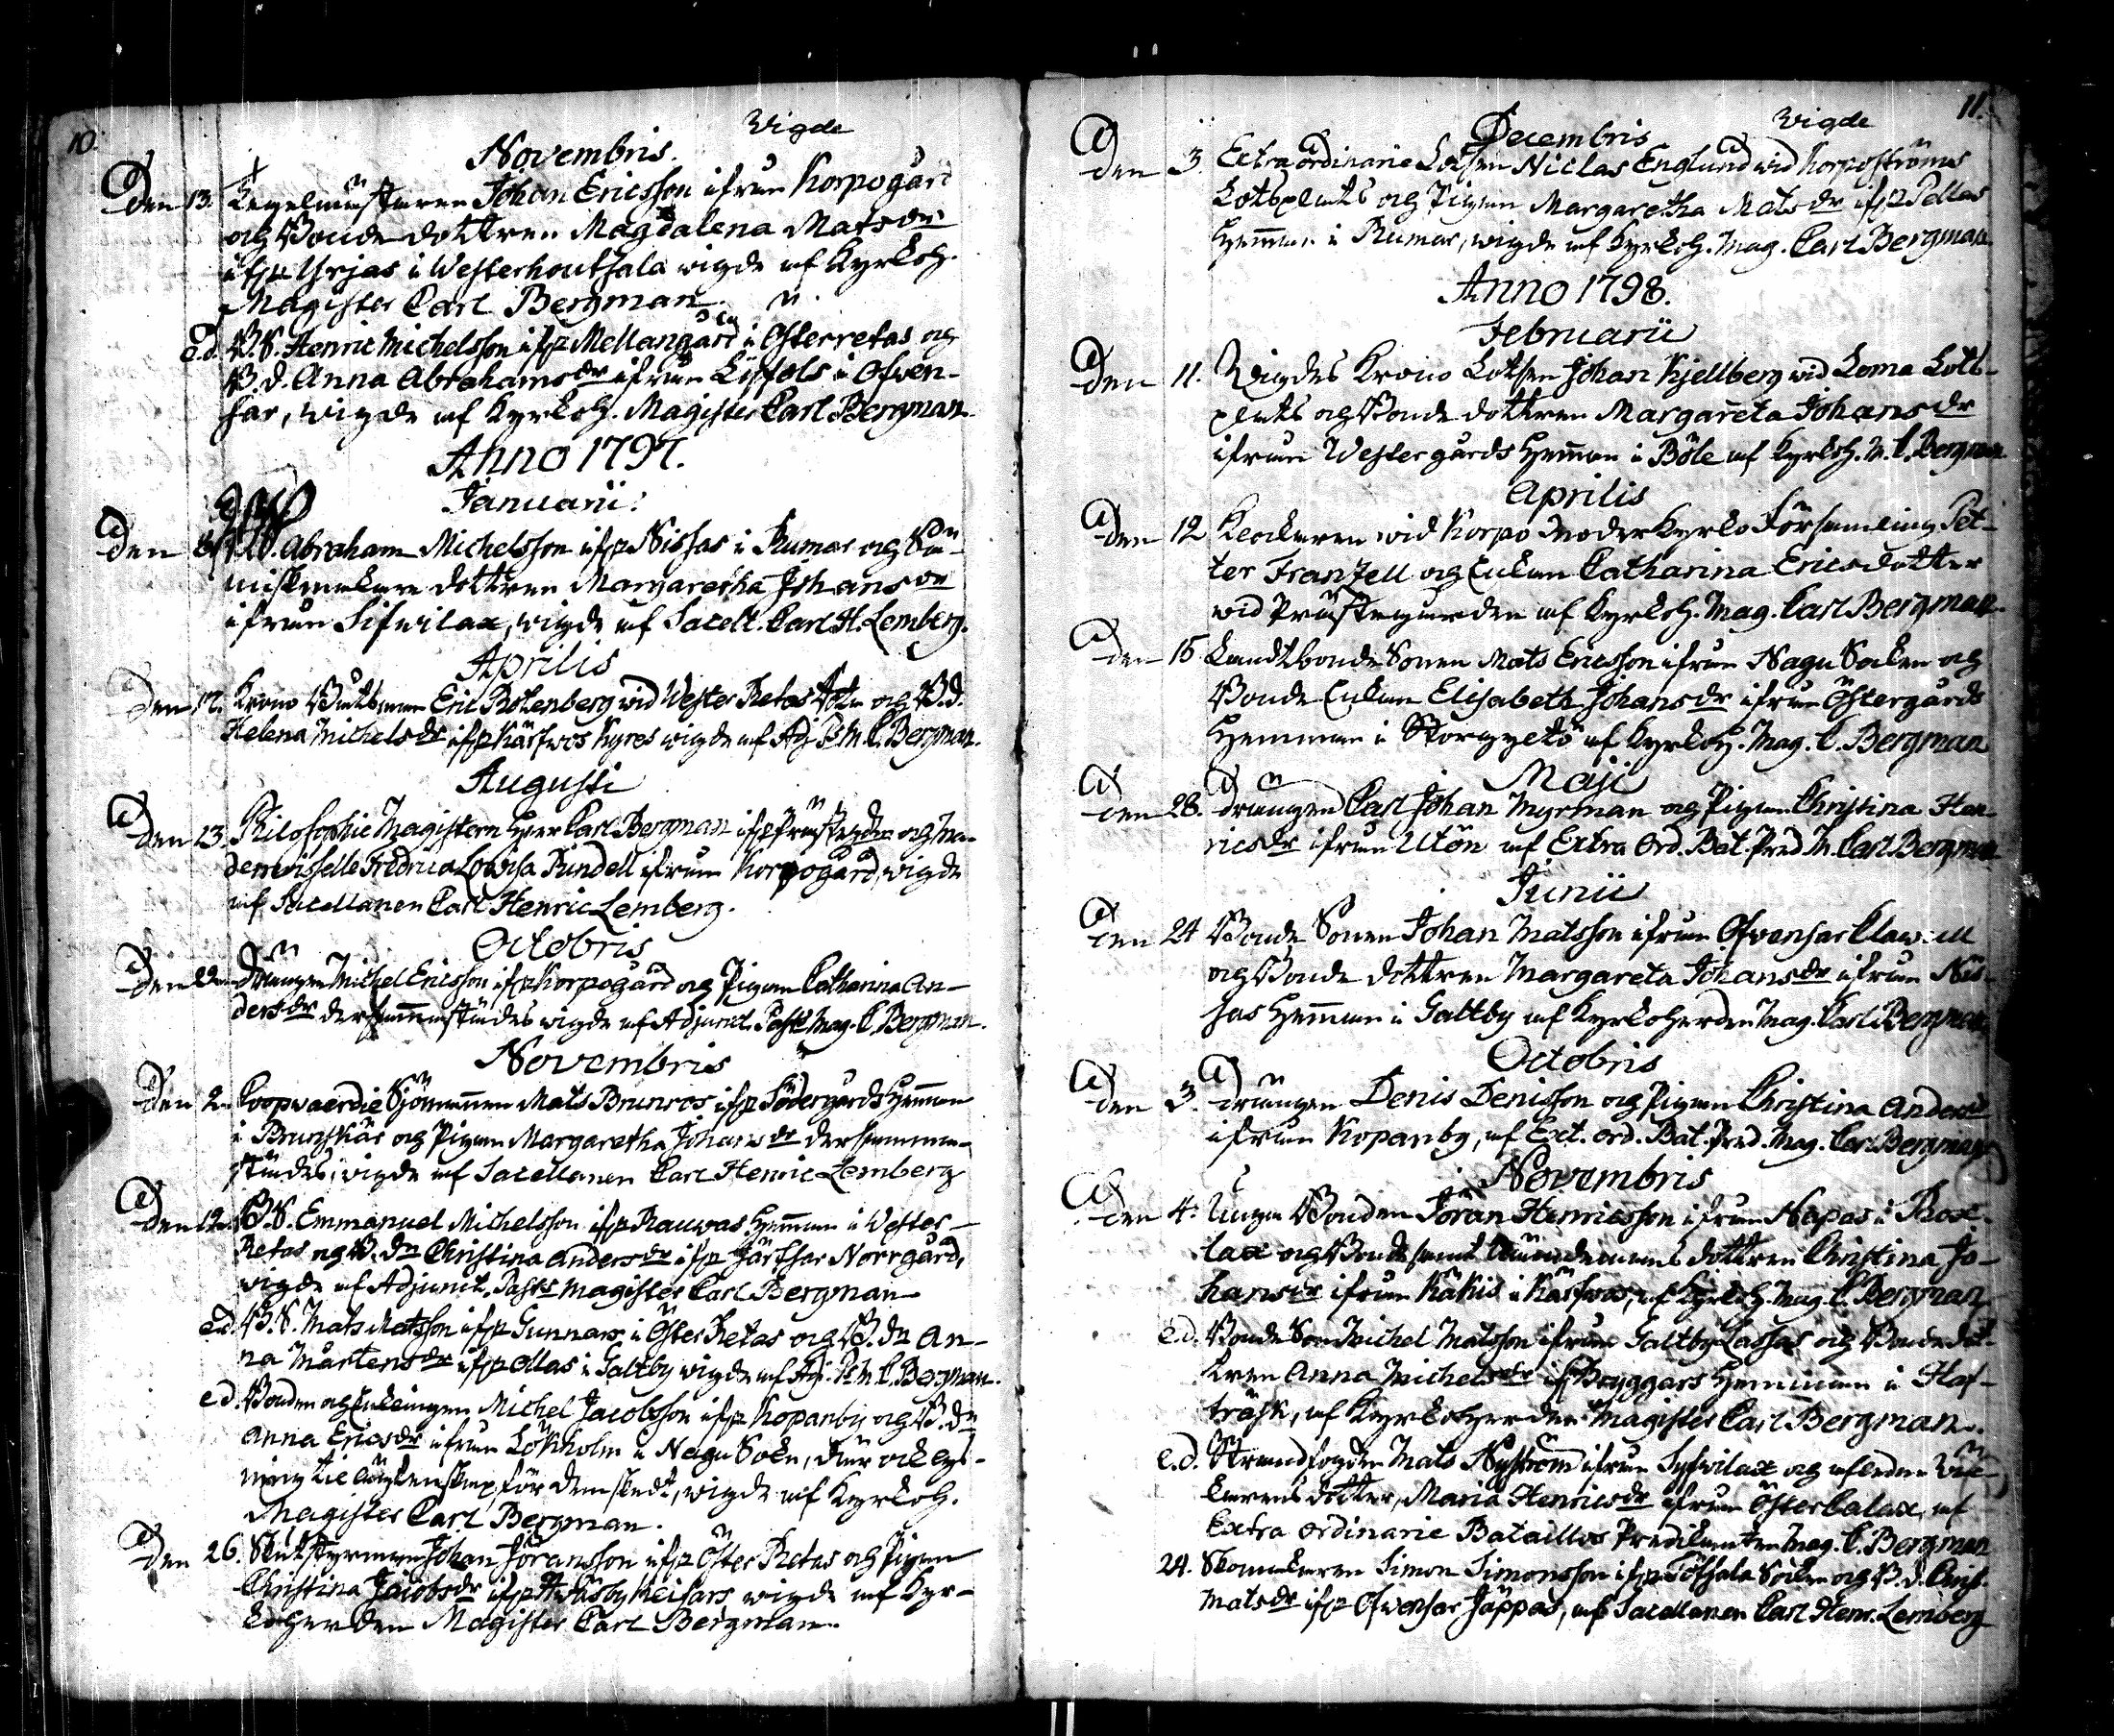 10.
Wigde
Novembris.
Den 13. Kegelmästaren Johan Ericsson ifrån Korpogård
och Bonde dottren Magdalena Matsdr
ifr. Yrjas i Westerhoutsala wigde af Kyrkoh.
Magister Carl Bergman.
e.d. B.S. Henric Michelsson ifr. Mellangård i Österretas och
B.d. Anna Abrahamsdr ifrån i Ofwen-
sar, wigde af Kyrkoh. Magister Carl Bergman.
Anno 1797.
Januarii.
Den B.S. Abraham Michelsson ifr. Nissas i Rumar och
dottren Margaretha Johansdr
ifrån Sifwilax, wigde af Sacell. Carl H. Lemberg.
Aprilis
Den 17. Krono Båtsman Eric Rotenberg wid Wester Retas och B.d.
Helena Michelsdr ifr. Kärfwos Kyres wigde af Adj. P. M. C. Bergman.
Augusti
Den 13. Philosophie Magistern Herr Carl Bergman ifr. och Ma-
demoiselle Fredrica Lovisa Pundell ifrån Korpogård, wigde
af Sacellanen Carl Henric Lemberg.
Octobris
Den 22. Drängen Michel Ericsson ifr. Korpogård och Pigan Catharina An-
dersdr dersammastädes wigde af Adjunct. Past. Mag. C. Bergman.
Novembris
Den 2. Coopvaerdie Sjömannen Mats Brunros ifr. Södergårds Hemman
i Brunskär och Pigan Margaretha Johansdr dersamma-
städes, wigde af Sacellanen Carl Henric Lemberg
Den 12. B.S. Emmanuel Michelsson ifr. Rauwas Hemman i Wester-
Retas och B.dr Christina Andersdr ifr. Järfsar Norrgård,
wigde af Adjunct. Past. Magister Carl Bergman
e.d. B.S. Mats Matsson ifr. Gunnars i Öster Retas och B.dr An-
na Mårtensdr ifr. Ollas i Galtby wigde af Adj. P. M. C. Bergman.
e.d. Bonden och Enklingen Michel Jacobsson ifr. Kopanby och B.dr
Anna Ericsdr ifrån Lökholm i Nagu Sokn, där ock lys-
ning til ächtenskap för dem skedt, wigde af Kyrkoh.
Magister Carl Bergman.
Den 26. Johan Jöransson ifr. Öster Retas och Pigan
Christina Jacobsdr ifr. Keisars wigde af Kyr-
koherden Magister Carl Bergman.
11.
Wigde
Decembris
den 3. Extra ordinarie Lotsen Niclas Englund wid Korpoströms
Lotsplats och Pigan Margaretha Matsdr ifr. Pellas
Hemman i Rumar, wigde af Kyrkoh. Mag. Carl Bergman
Anno 1798.
Februarii
Den 11. Wigdes Krono Lotsen Johan Kjellberg wid Loma Lots-
plats och Bonde dottren Margareta Johansdr
ifrån Westergårds Hemman i Böle af Kyrkoh. M. C. Bergman
Aprilis
den 12 Klockaren wid Korpo Moderkyrko Församling Pet-
ter Franzell och Enkan Catharina Ericsdotter
wid Prästegården af Kyrkoh. Mag. Carl Bergman.
den 15 Landtbonde Sonen Mats Ericsson ifrån Nagu Soken och
Bonde Enkan Elisabeth Johansdr ifrån Östergårds
Hemman i Storgyltö af Kyrkoh. Mag. C. Bergman
Maji
den 28. drängen Carl Johan Myrman och Pigan Christina Hen-
ricsdr ifrån Utön af Extra Ord. Bat. Pred. M. Carl Bergman
Junii
den 24 Bonde Sonen Johan Matsson ifrån Ofwensar
och Bonde dottren Margareta Johansdr ifrån Nis-
sas Hemman i Galtby af Kyrkoherden Mag. Carl Bergman
Octobris
den 3. drängen Denis Denisson och Pigan Christina Andersdr
ifrån Kopanby, af Ext. ord. Bat. Pred. Mag. Carl Bergman
Novembris
den 4. Unga Bonden Jöran Henricsson ifrån Näpas i Rox-
lax och Bonde samt Nämdemans dottren Christina Jo-
hansdr ifrån Käkis i Kärfwos, af Kyrkoh. Mag. C. Bergman
e.d. Bonde Son Michel Matsson ifrån Galtby Lassas och Bonde dot-
tren Anna Michelsdr ifr. Bryggars Hemman i Haf-
träsk, af Kyrkoherden Magister Carl Bergman.
e.d. Strandfogden Mats Nyström ifrån Syfwilax och afledne
dotter, Maria Henricsdr ifrån Öster Calax, af
Extra ordinarie Bataillos Predikanten Mag. C. Bergman
24. Skomakaren Simon Simonsson ifr. Töfsala Soken och B.d. Chris.
Matsdr ifr. Ofwensar Jäppas, af Sacellanen Carl Henr. Lemberg